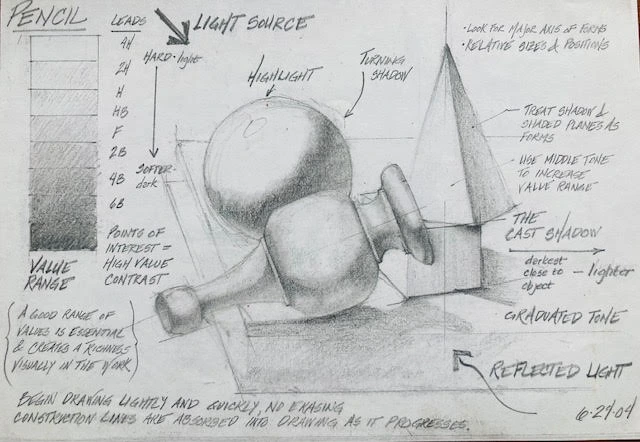 PENCIL
LEADS
4H
2H
H
HB
F
2B
4B
6B
HARD - light
SOFTER - dark
VALUE
RANGE
POINTS OF
INTEREST =
HIGH VALUE
CONTRAST
A GOOD RANGE OF
VALUES IS ESSENTIAL
& CREATES A RICHNESS
VISUALLY IN THE WORK
LIGHT SOURCE
HIGHLIGHT
TURNING
SHADOW
• LOOK FOR MAJOR AXIS OF FORMS
• RELATIVE SIZES & POSITIONS
TREAT SHADOW &
SHADED PLANES AS
FORMS
USE MIDDLE TONE
TO INCREASE
VALUE RANGE
THE
CAST SHADOW
darkest
close to
object
— lighter
GRADUATED TONE
REFLECTED LIGHT
BEGIN DRAWING LIGHTLY AND QUICKLY, NO ERASING
CONSTRUCTION LINES ARE ABSORBED INTO DRAWING AS IT PROGRESSES.
6·29·09